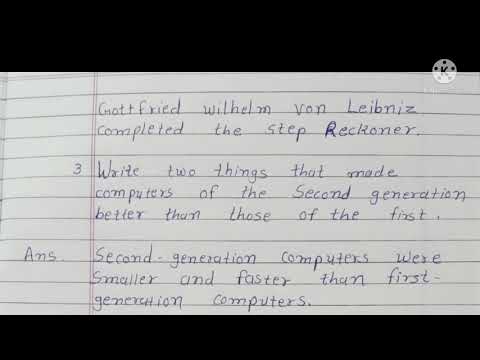 Gottfried Wilhelm von Leibniz
completed the step Reckoner.
3 Write two things that made
computers of the Second generation
better than those of the first.
Ans. Second-generation computers were
Smaller and faster than first-
generation computers.